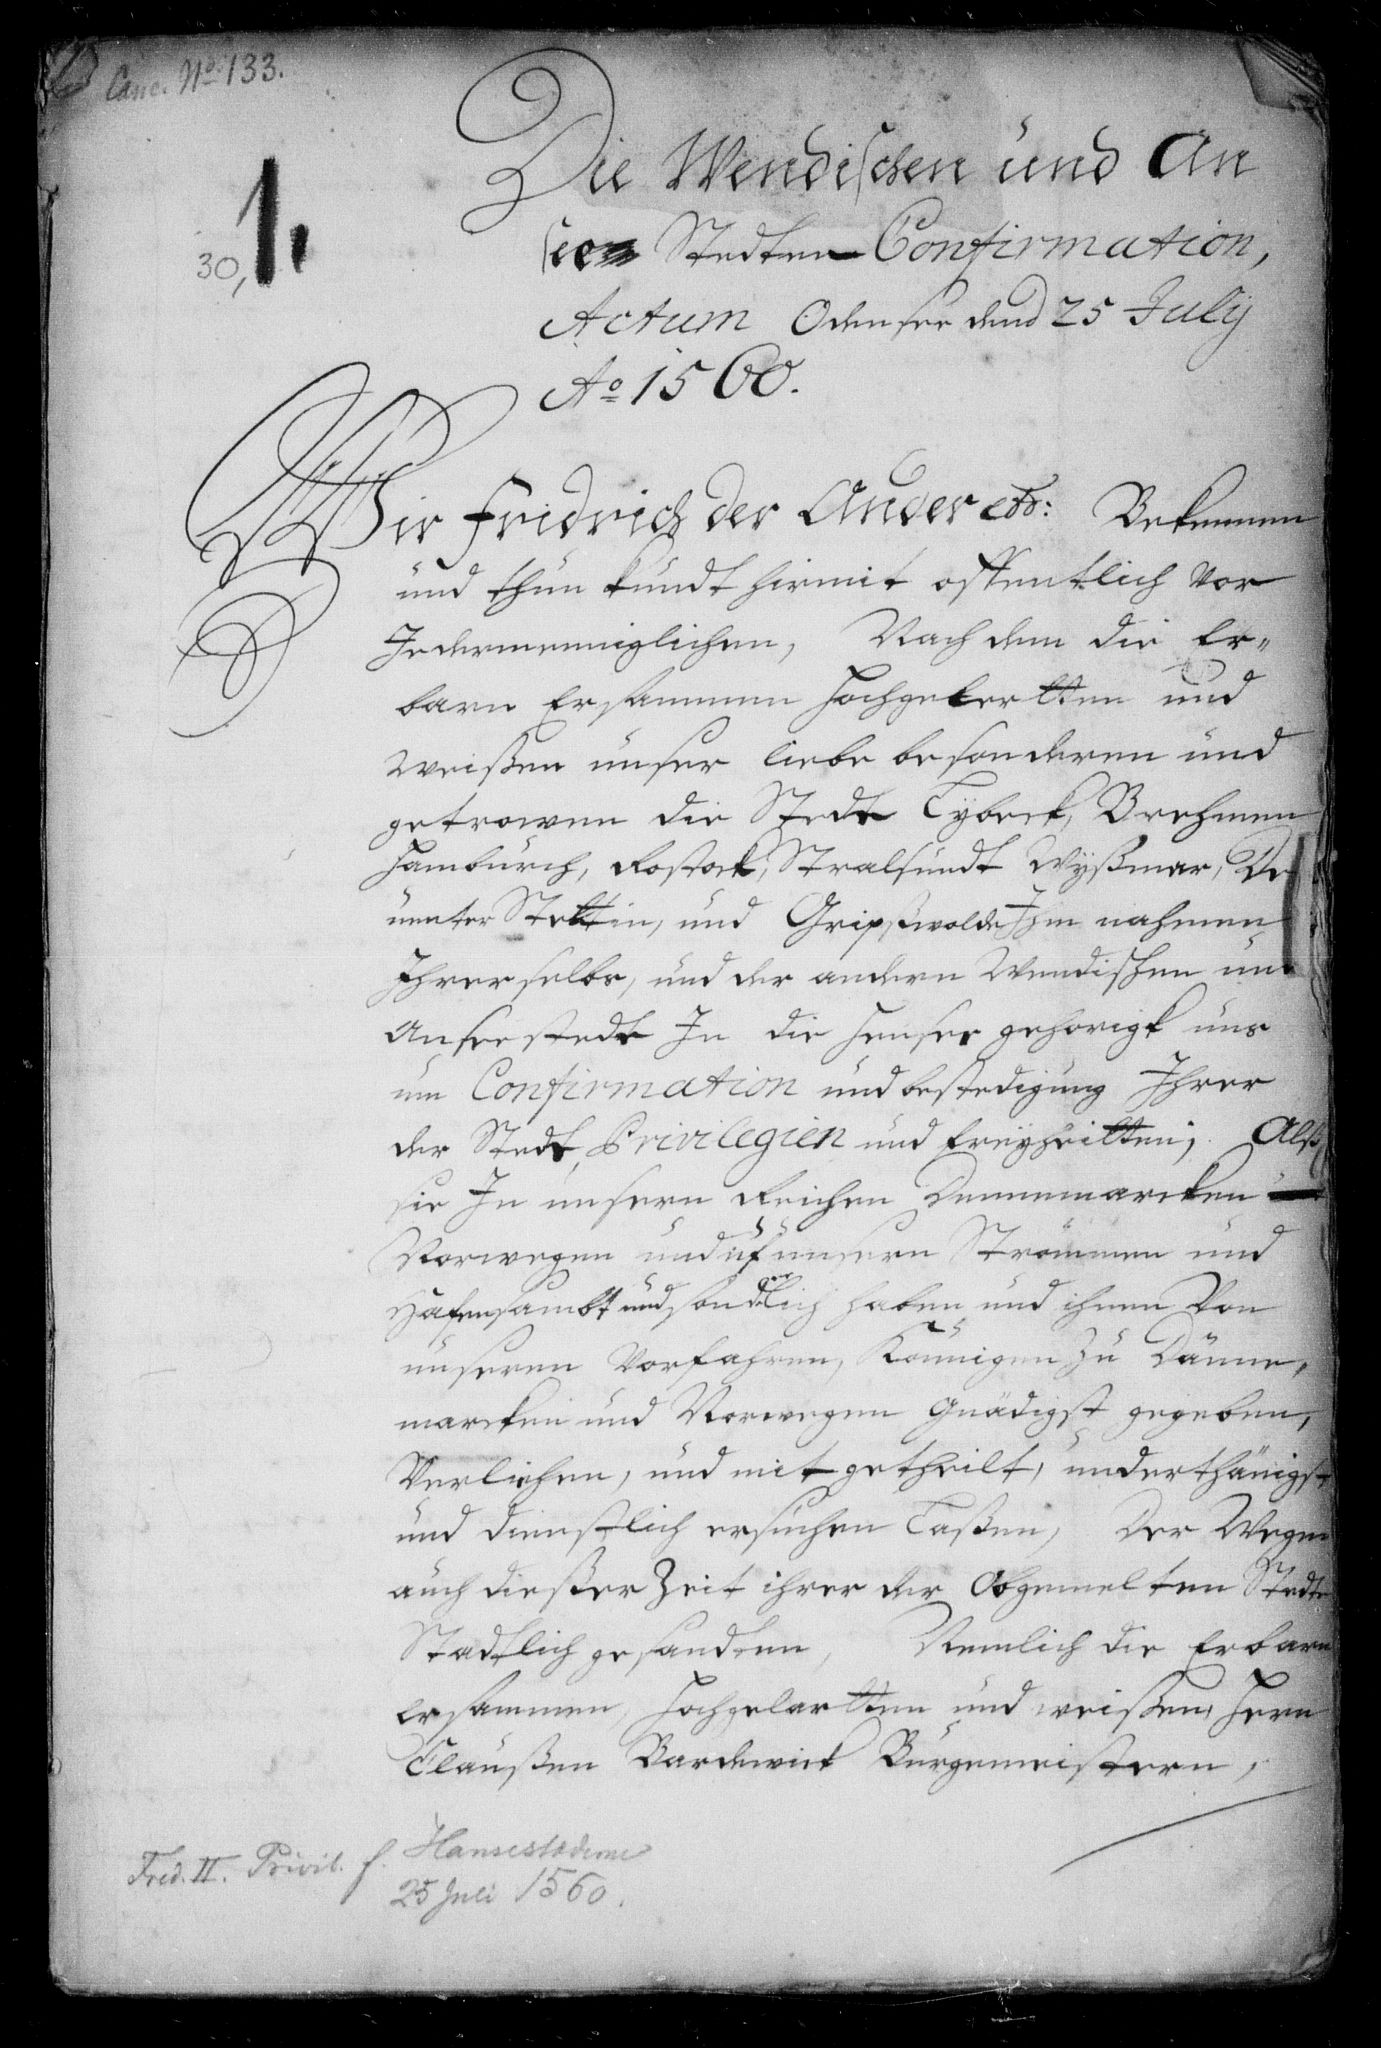 Canc. No 133.
1.
30,
Die Wendischen und An
see Stedten Confirmation,
Actum Odensee dend 25 July
Ao 1560.
Wir Fridrich der Ander etc: Bekennen
und thun kundt hirmit offentlich vor
Jedermenniglichen, Nach dem die Er-
barn Ersammen Hochgelertten und
weißen unser liebe besonderen und
getrowen die Stedte Lybeck, Brehmen
Hamburch, Rostock, Stralsundt Wyßmar,
unnter Stettin, und Gripßwolde Ihm nahmen
Ihrer selbs, und der andern Wendischen und
Anseestedte In die Hensee gehorigt uns
um Confirmation und bestedigung Ihrer
der Stedte Privilegien und freyheitten, Alß
sie In unsern Reichen Dennemarcken
Norwegen und uf unsern Strömmen und
Häfen sambt und sonderlich haben und ihnen von
unseren Vorfahren, Könnigen zu Dänne-
marcken und Norwegen Gnädigst gegeben,
Verliehen, und mit getheilt, underthänigst
und dienstlich ersuchen laßen, Der Wegen
auch dießer Zeit ihrer der Obgemelten Stedte
Stadtlich gesandten, Nemlich die Erbarn
ersammen, Hochgelartten und weißen, Hern
Claußen Bardewick Bürgemeistern,
Fred. II. Privil. f. Hansestæderne
25 Juli 1560.